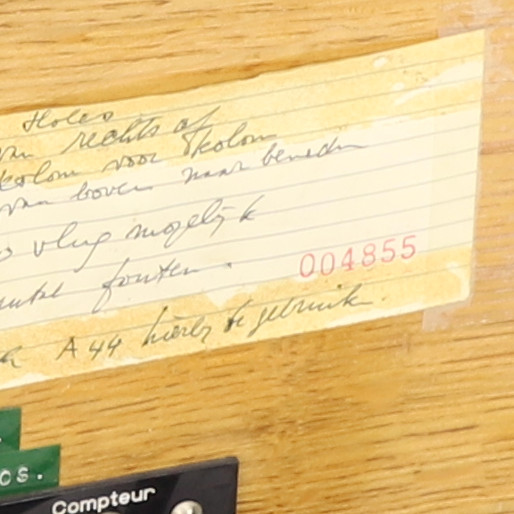 Holes
van rechts af
kolom voor kolom
van boven naar beneden
vlug mogelijk
fouten.
004855
A44 hierbij te gebruik.
os.
Compteur